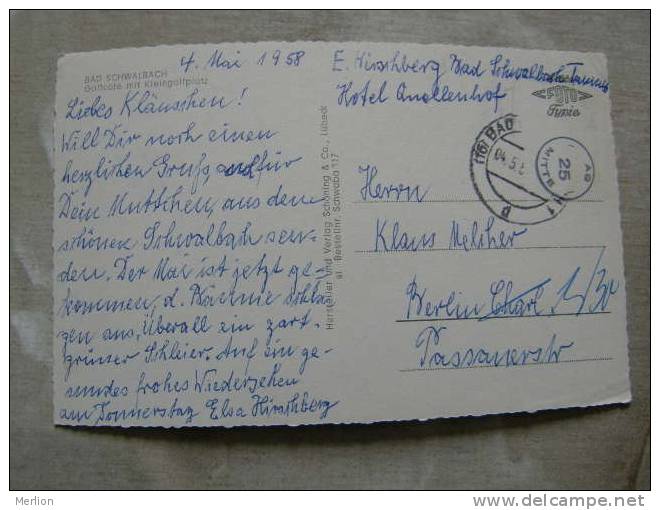 4. Mai 1958
BAD SCHWALBACH
Golfcafe mit Kleingolfplatz
Liebes Kläuschen!
Will Dir noch einen
herzlichen Gruß, auch für
Dein Muttchen, aus dem
schönen Schwalbach sen-
den. Der Mai ist jetzt ge-
kommen, d. Bäume schla-
gen aus, Überall ein zart-
grüner Schleier. Auf ein ge-
sundes frohes Wiedersehen
am Donnerstag Elsa Hirschberg
Hersteller und Verlag Schöning & Co., Lübeck
Bestellnr. Schwaba 117
E. Hirschberg Bad Schwalbach Taunus
Hotel Quellenhof
FOTO
(16) BAD
04.5.5
25
Herrn
Klaus Melcher
Berlin Charl 1/30
Passauerstr
Merlion
www.delcampe.net